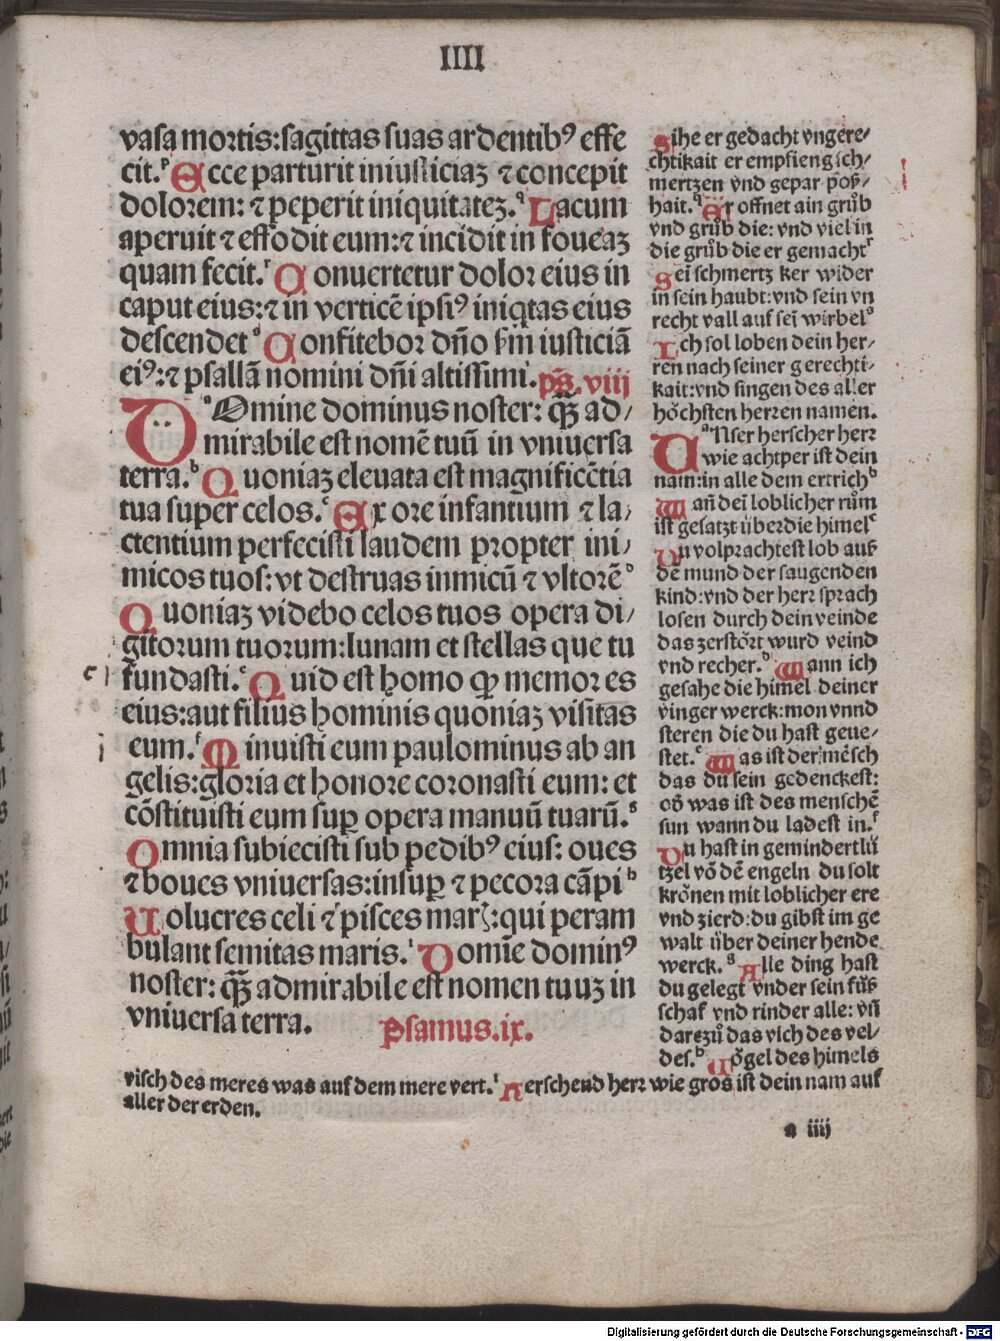 IIII
vasa mortis:sagittas suas ardentibꝰ effe
cit.ᵖ Ecce parturit iniusticiaꝫ ⁊ concepit
dolorem: ⁊ peperit iniquitateꝫ.ᑫ Lacum
aperuit ⁊ effodit eum:⁊ incidit in foueaꝫ
quam fecit.ʳ Conuertetur dolor eius in
caput eius:⁊ in verticē ipsiꝰ iniqtas eius
descendetˢ Confitebor dño ẜm iusticiā
eiꝰ:⁊ psallā nomini dñi altissimi. ps̄. viij
DᵃOmine dominus noster: qꝫ̄ ad/
mirabile est nomē tuū in vniuersa
terra.ᵇ Quoniaꝫ eleuata est magnificētia
tua super celos.ᶜ Ex ore infantium ⁊ la/
ctentium perfecisti laudem propter ini/
micos tuos: vt destruas inmicū ⁊ vltorēᵈ
Quoniaꝫ videbo celos tuos opera di/
gitorum tuorum:lunam et stellas que tu
fundasti.ᵉ Quid est homo ꝙ memor es
eius:aut filius hominis quoniaꝫ visitas
eum.ᶠ Minuisti eum paulominus ab an
gelis:gloria et honore coronasti eum: et
cōstituisti eum suꝑ opera manuū tuarū.ᵍ
Omnia subiecisti sub pedibꝰ eius: oues
⁊ boues vniuersas:insuꝑ ⁊ pecora cāpiʰ
Uolucres celi ⁊ pisces marꝭ:qui peram
bulant semitas maris.ⁱ Domīe dominꝰ
noster: qꝫ̄ admirabile est nomen tuuꝫ in
vniuersa terra.
Psamus.ix.
Sihe er gedacht vngere/
chtikait er empfieng sch/
mertzen vnd gepar poß/
hait.ᑫ Er offnet ain grůb
vnd grůb die: vnd viel in
die grůb die er gemachtʳ
Sei schmertz ker wider
in sein haubt:vnd sein vn
recht vall auf sei wirbelˢ
Ich sol loben dein her/
ren nach seiner gerechti/
kait:vnd singen des aller
höchsten herren namen.
UᵃNser herscher herr
wie achtper ist dein
nam:in alle dem ertrichᵇ
Wañ dei loblicher rům
ist gesatzt über die himelᶜ
Du volprachtest lob auß
dē mund der saugenden
kind:vnd der herr sprach
losen durch dein veinde
das zerstört wurd veind
vnd recher.ᵈ Wann ich
gesahe die himel deiner
vinger werck:mon vnnd
steren die du hast geue/
stet.ᵉ Was ist der mēsch
das du sein gedenckest:
oð was ist des menschē
sun wann du ladest in.ᶠ
Du hast in gemindert lü
tzel vō dē engeln du solt
krönen mit loblicher ere
vnd zierd:du gibst im ge
walt über deiner hende
werck.ᵍ Alle ding hast
du gelegt vnder sein füß
schaf vnd rinder alle: vñ
darezů das vich des vel/
des.ʰ Uögel des himels
visch des meres was auf dem mere vert.ⁱ Herschend herr wie gros ist dein nam auf
aller der erden.
a iiij
Digitalisierung gefördert durch die Deutsche Forschungsgemeinschaft - DFG